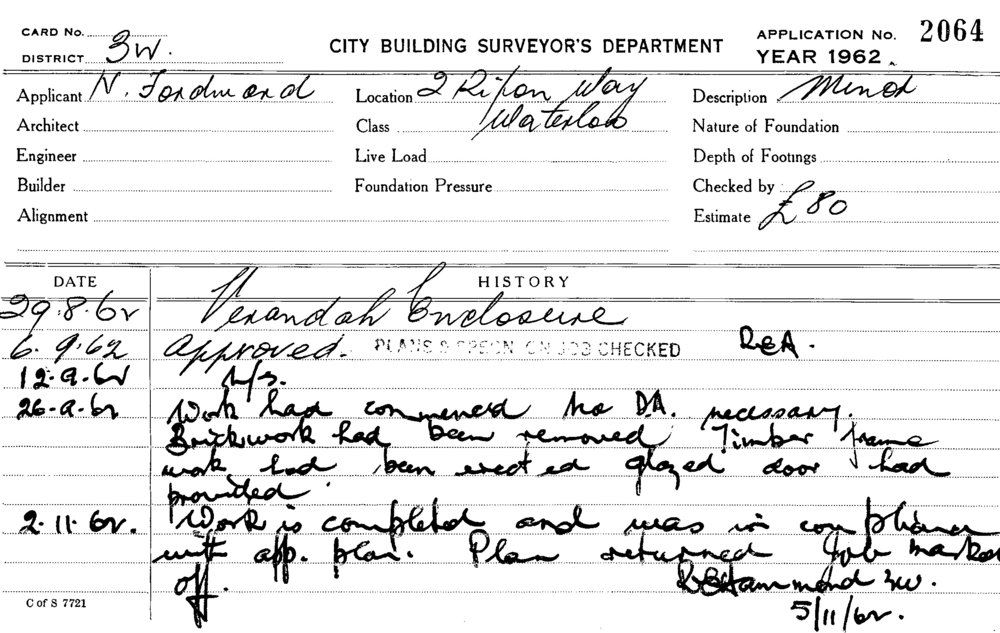 CARD No.
DISTRICT 3W.
CITY BUILDING SURVEYOR'S DEPARTMENT
APPLICATION No. 2064
YEAR 1962
Applicant N. Fordward
Location 2 Ripon Way
Description Minor
Architect
Class Waterloo
Nature of Foundation
Engineer
Live Load
Depth of Footings
Builder
Foundation Pressure
Checked by
Alignment
Estimate £80
DATE
HISTORY
29.8.62 Verandah Enclosure
6.9.62 Approved. PLANS & SPECN ON JOB CHECKED
12.9.62 N/S.
26-9-62 Work had commenced No D.A. necessary.
Brickwork had been removed Timber frame
work had been erected glazed door had
provided.
2.11.62. Work is completed and was in compliance
with app. plan. Plan returned Job marked
off.
RBHammond 3W.
5/11/62.
C of S 7721